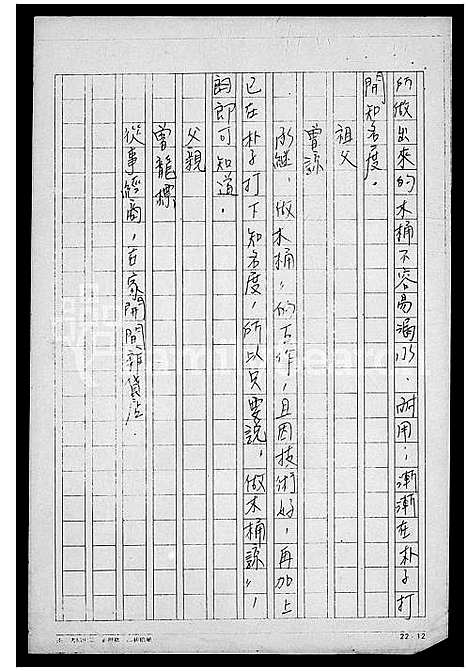 所做出來的木桶不容易漏水、耐用;漸漸在朴子打
開知名度。
祖父
曾諒
承繼〝做木桶〞的工作,且因技術好,再加上
已在朴子打下知名度,所以只要說〝做木桶諒〞,
即可知道。
父親
曾龍標
從事經商,在家開間雜貨店.
22×12